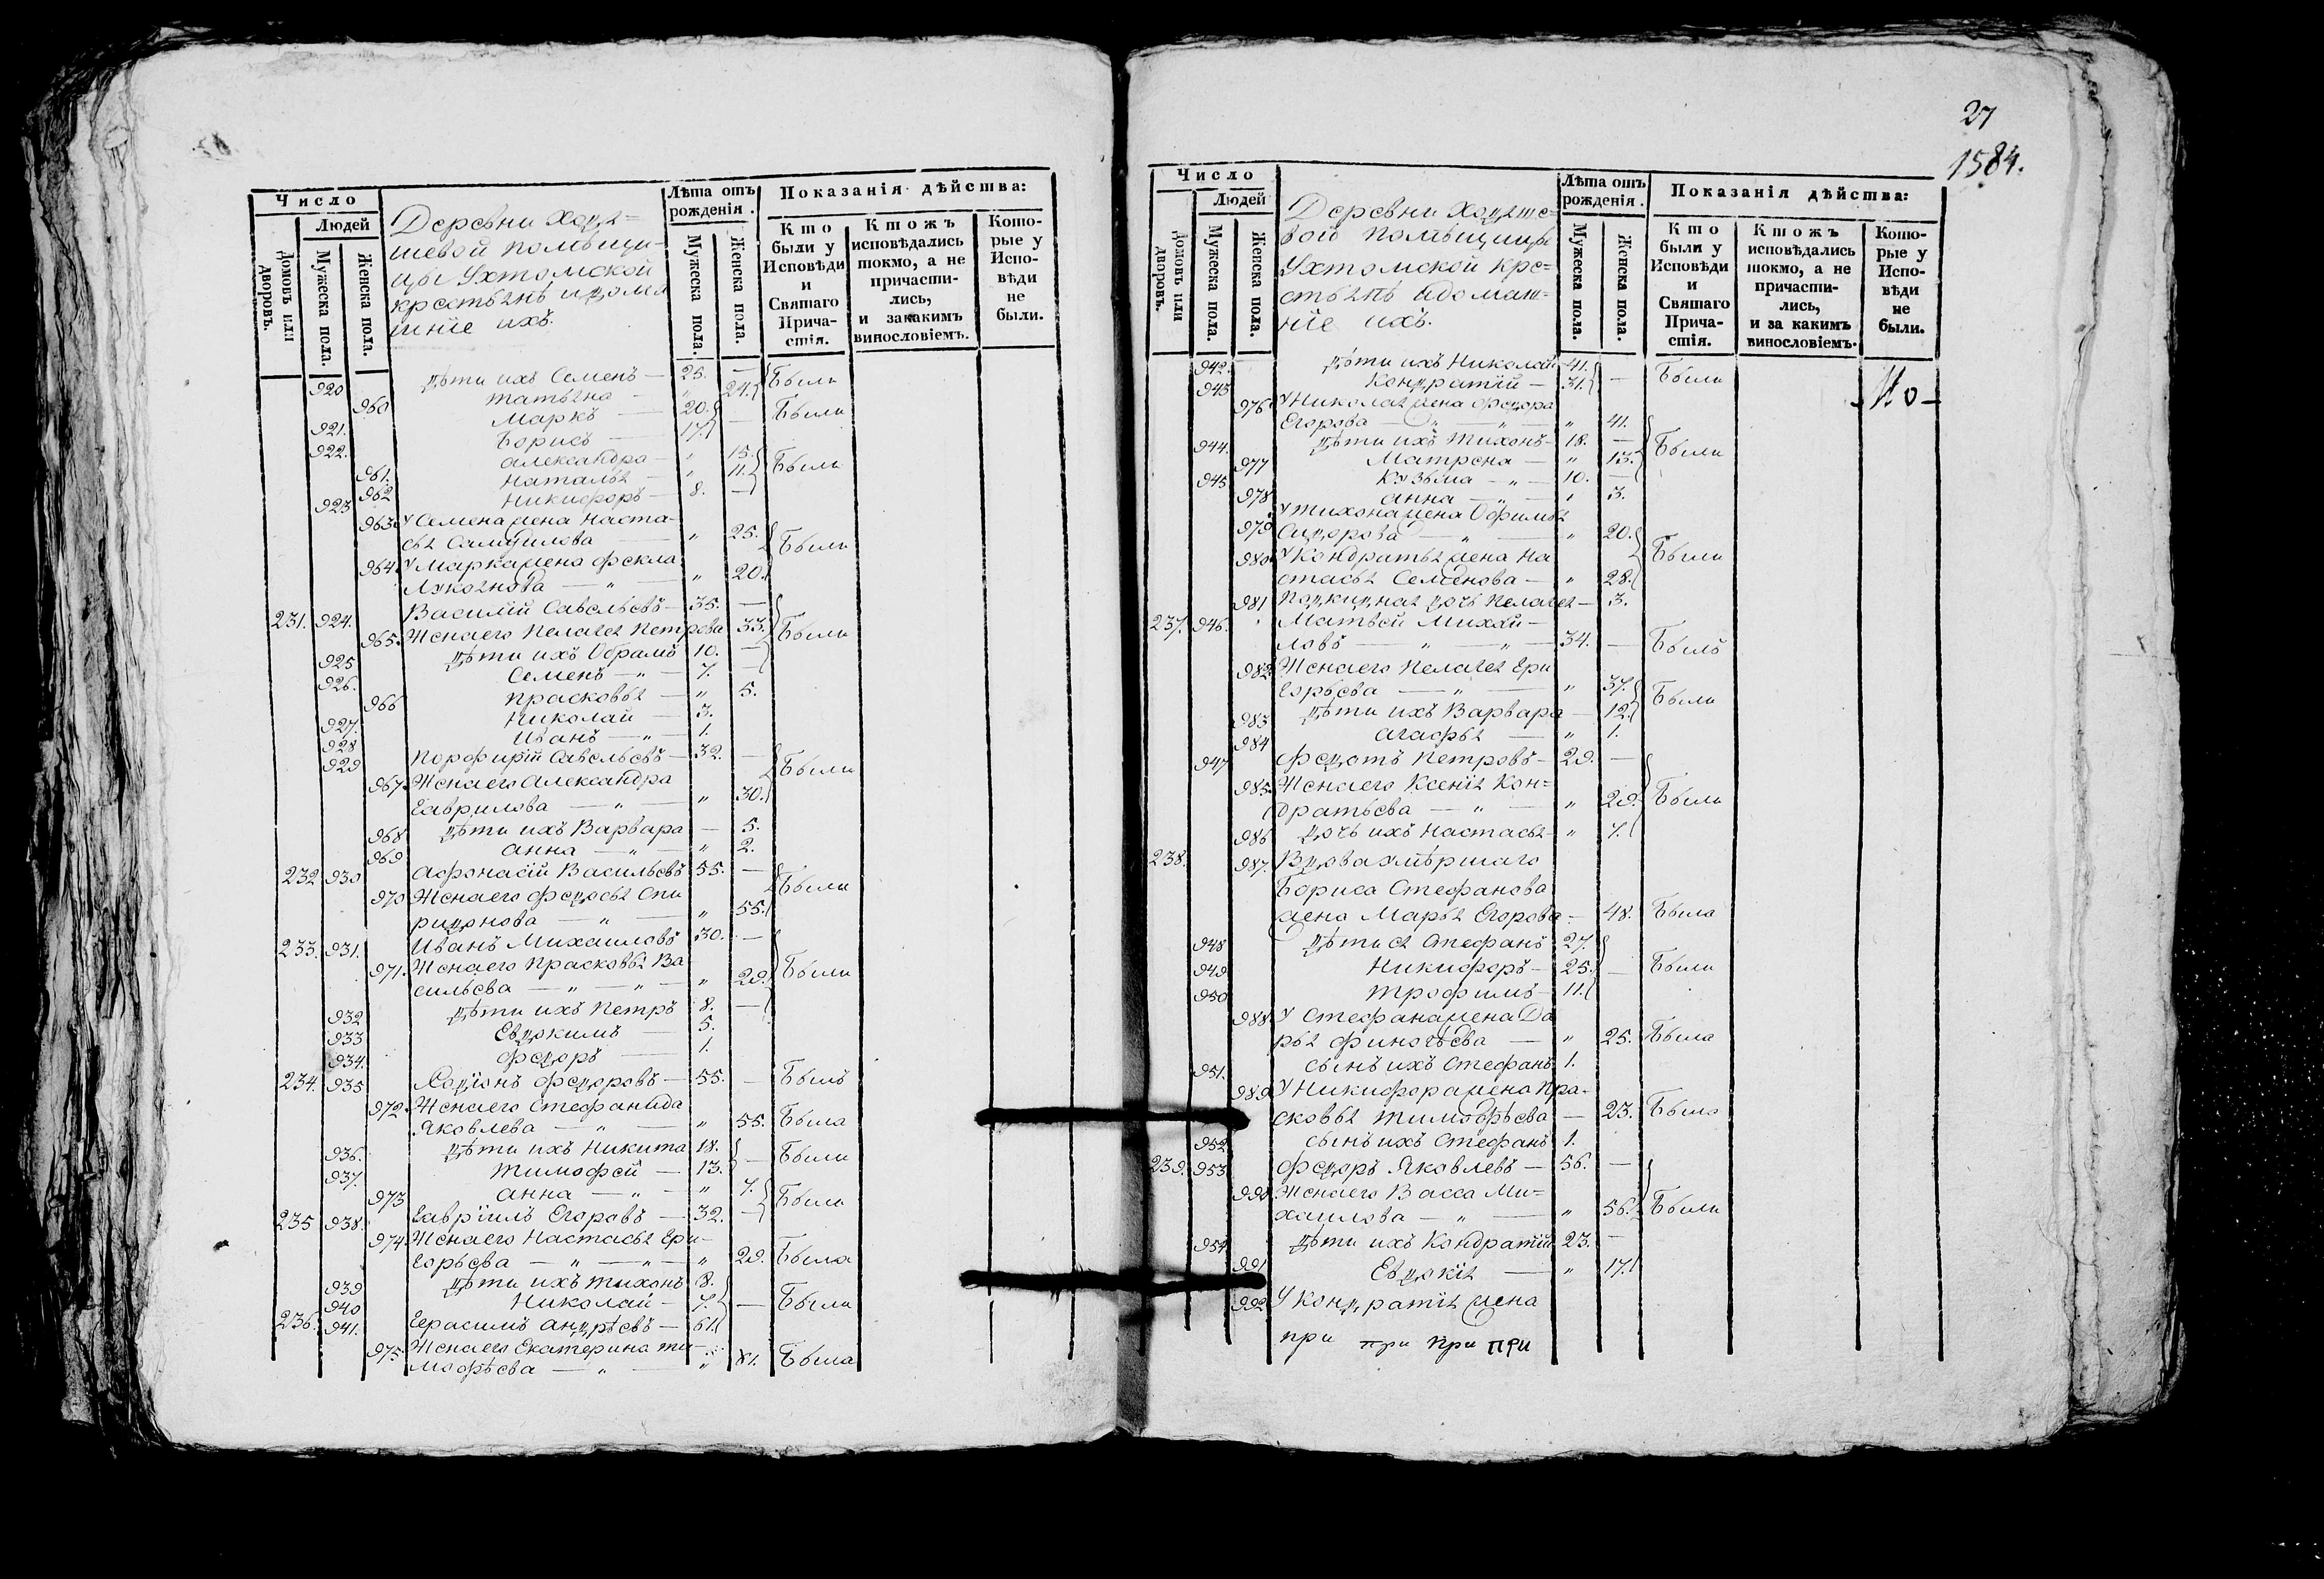 Число
Людей
Домовъ или дворовъ.
Мужеска пола.
Женска пола.
Деревни Ходя=
шевой помѣщи-
цы Ухтомской
крестьянѣ идома
шніе ихъ.
Лѣта отъ рожденія.
Мужеска пола.
Женска пола.
Показанія дѣйства:
Кто были у Исповѣди и Святаго Прича-стія.
Ктожъ исповѣдались токмо, а не причасти-лись, и закакимъ винословіемъ.
Кото-рые у Испо-вѣди не были.
920 дѣти ихъ Семенъ — 25. — Были
960 татьяна — " 24.
921. Маркъ — 20. — Были
922. Борисъ — 17.
961. александра — " 15. Были
962 наталья — " 11.
923 Никифоръ — 8. —
963. У Семена жена Наста-
сья Самуилова — " 25. Были
964. У Марка жена фекла
Лукоянова — " — " 20.
231. 924. Василій Савельевъ — 35. —
965. Жена его Пелагея Петрова 33. Были
925 дѣти ихъ Обрамъ 10. —
926. Семенъ — " — 7. —
966 прасковья — " 5.
927. Николай — 3.
928 Иванъ — " — 1.
929 Порфирій Савельевъ — 32. — Были
967. Жена его Александра
Гаврилова — " — " 30.
968 дѣти ихъ Варвара — 5.
969 анна — " — " 2.
232 930 Афонасій Васильевъ 55. —
970 Жена его федосья Спи Были
ридонова — " — " 55.
233. 931. Иванъ Михаиловъ 30. —
971. Жена его Прасковья Ва Были
сильева — " — " — " 29.
932 дѣти ихъ Петръ 8. —
933 Евдокимъ — 5.
934. федоръ — 1.
234. 935 Родіонъ федоровъ — 55. — Былъ
972. Жена его Стефанида
Яковлева — " — " 55. Была
936. дѣти ихъ Никита 18. — Были
937. тимофей — 13.
973 анна — " — " 7. Были
235 938. Гавріилъ Егоровъ — 32. —
974. Жена его Настасья Гри-
горьева — " — " — " 29. Была
939 дѣти ихъ тихонъ 8.
940 Николай — 7. — Были
236. 941. Герасимъ андрѣевъ — 61.
975 Жена его Екатерина ти-
мофѣева — " — " 61. Была
27
1584.
Число
Людей
Домовъ или дворовъ.
Мужеска пола.
Женска пола.
Деревни Ходяше=
вой помѣщицы
Ухтомской кре=
стьянѣ идомаш=
ніе ихъ.
Лѣта отъ рожденія.
Мужеска пола.
Женска пола.
Показанія дѣйства:
Кто были у Исповѣди и Святаго Прича-стія.
Ктожъ исповѣдались токмо, а не причасти-лись, и за какимъ винословіемъ.
Кото-рые у Испо-вѣди не были.
942. дѣти ихъ Николай 41. — Были
943 Кондратій — 31.
976 У Николая жена федора
Егорова — " — " — " 41.
944. дѣти ихъ тихонъ — 18. — Были
977 Матрена — " 13.
945 Кузьма — " — 10. —
978 анна — " — " 3.
979 У тихона жена Офимья
Сидорова — " — " 20.
980. У Кондратья жена На Были
стасья Семенова — " 28.
981 Подкидная дочь Пелагея — 3.
237. 946. Матвѣй Михай-
ловъ — " — " — 34. — Былъ
982 Жена его Пелагея Гри
горьева — " — " 37.
983 дѣти ихъ Варвара — 12. Были
984 агафья — " 1.
947 федотъ Петровъ — 29. —
985. Жена его Ксенія Кон=
дратьева — " — " 29. Были
986 дочь ихъ Настасья — " 7.
238. 987. Вдова умѣршаго
Бориса Стефанова
жена Марья Егорова — 48. Была
948 дѣти ея Стефанъ 27.
949 Никифоръ — 25. — Были
950 трофимъ — 11.
988. У Стефана жена Да
рья финогѣева — " 25. Была
951. сынъ ихъ Стефанъ 1.
989 У Никифора жена Пра-
сковья тимофѣева — 23. Была
952 сынъ ихъ Стефанъ 1.
239. 953 федоръ Яковлевъ — 56. —
990 Жена его Васса Ми=
хаилова — " — " 56. Были
954 дѣти ихъ Кондратій 23. —
991 Евдокія — " 17.
992 У Кондратія жена
при при при при